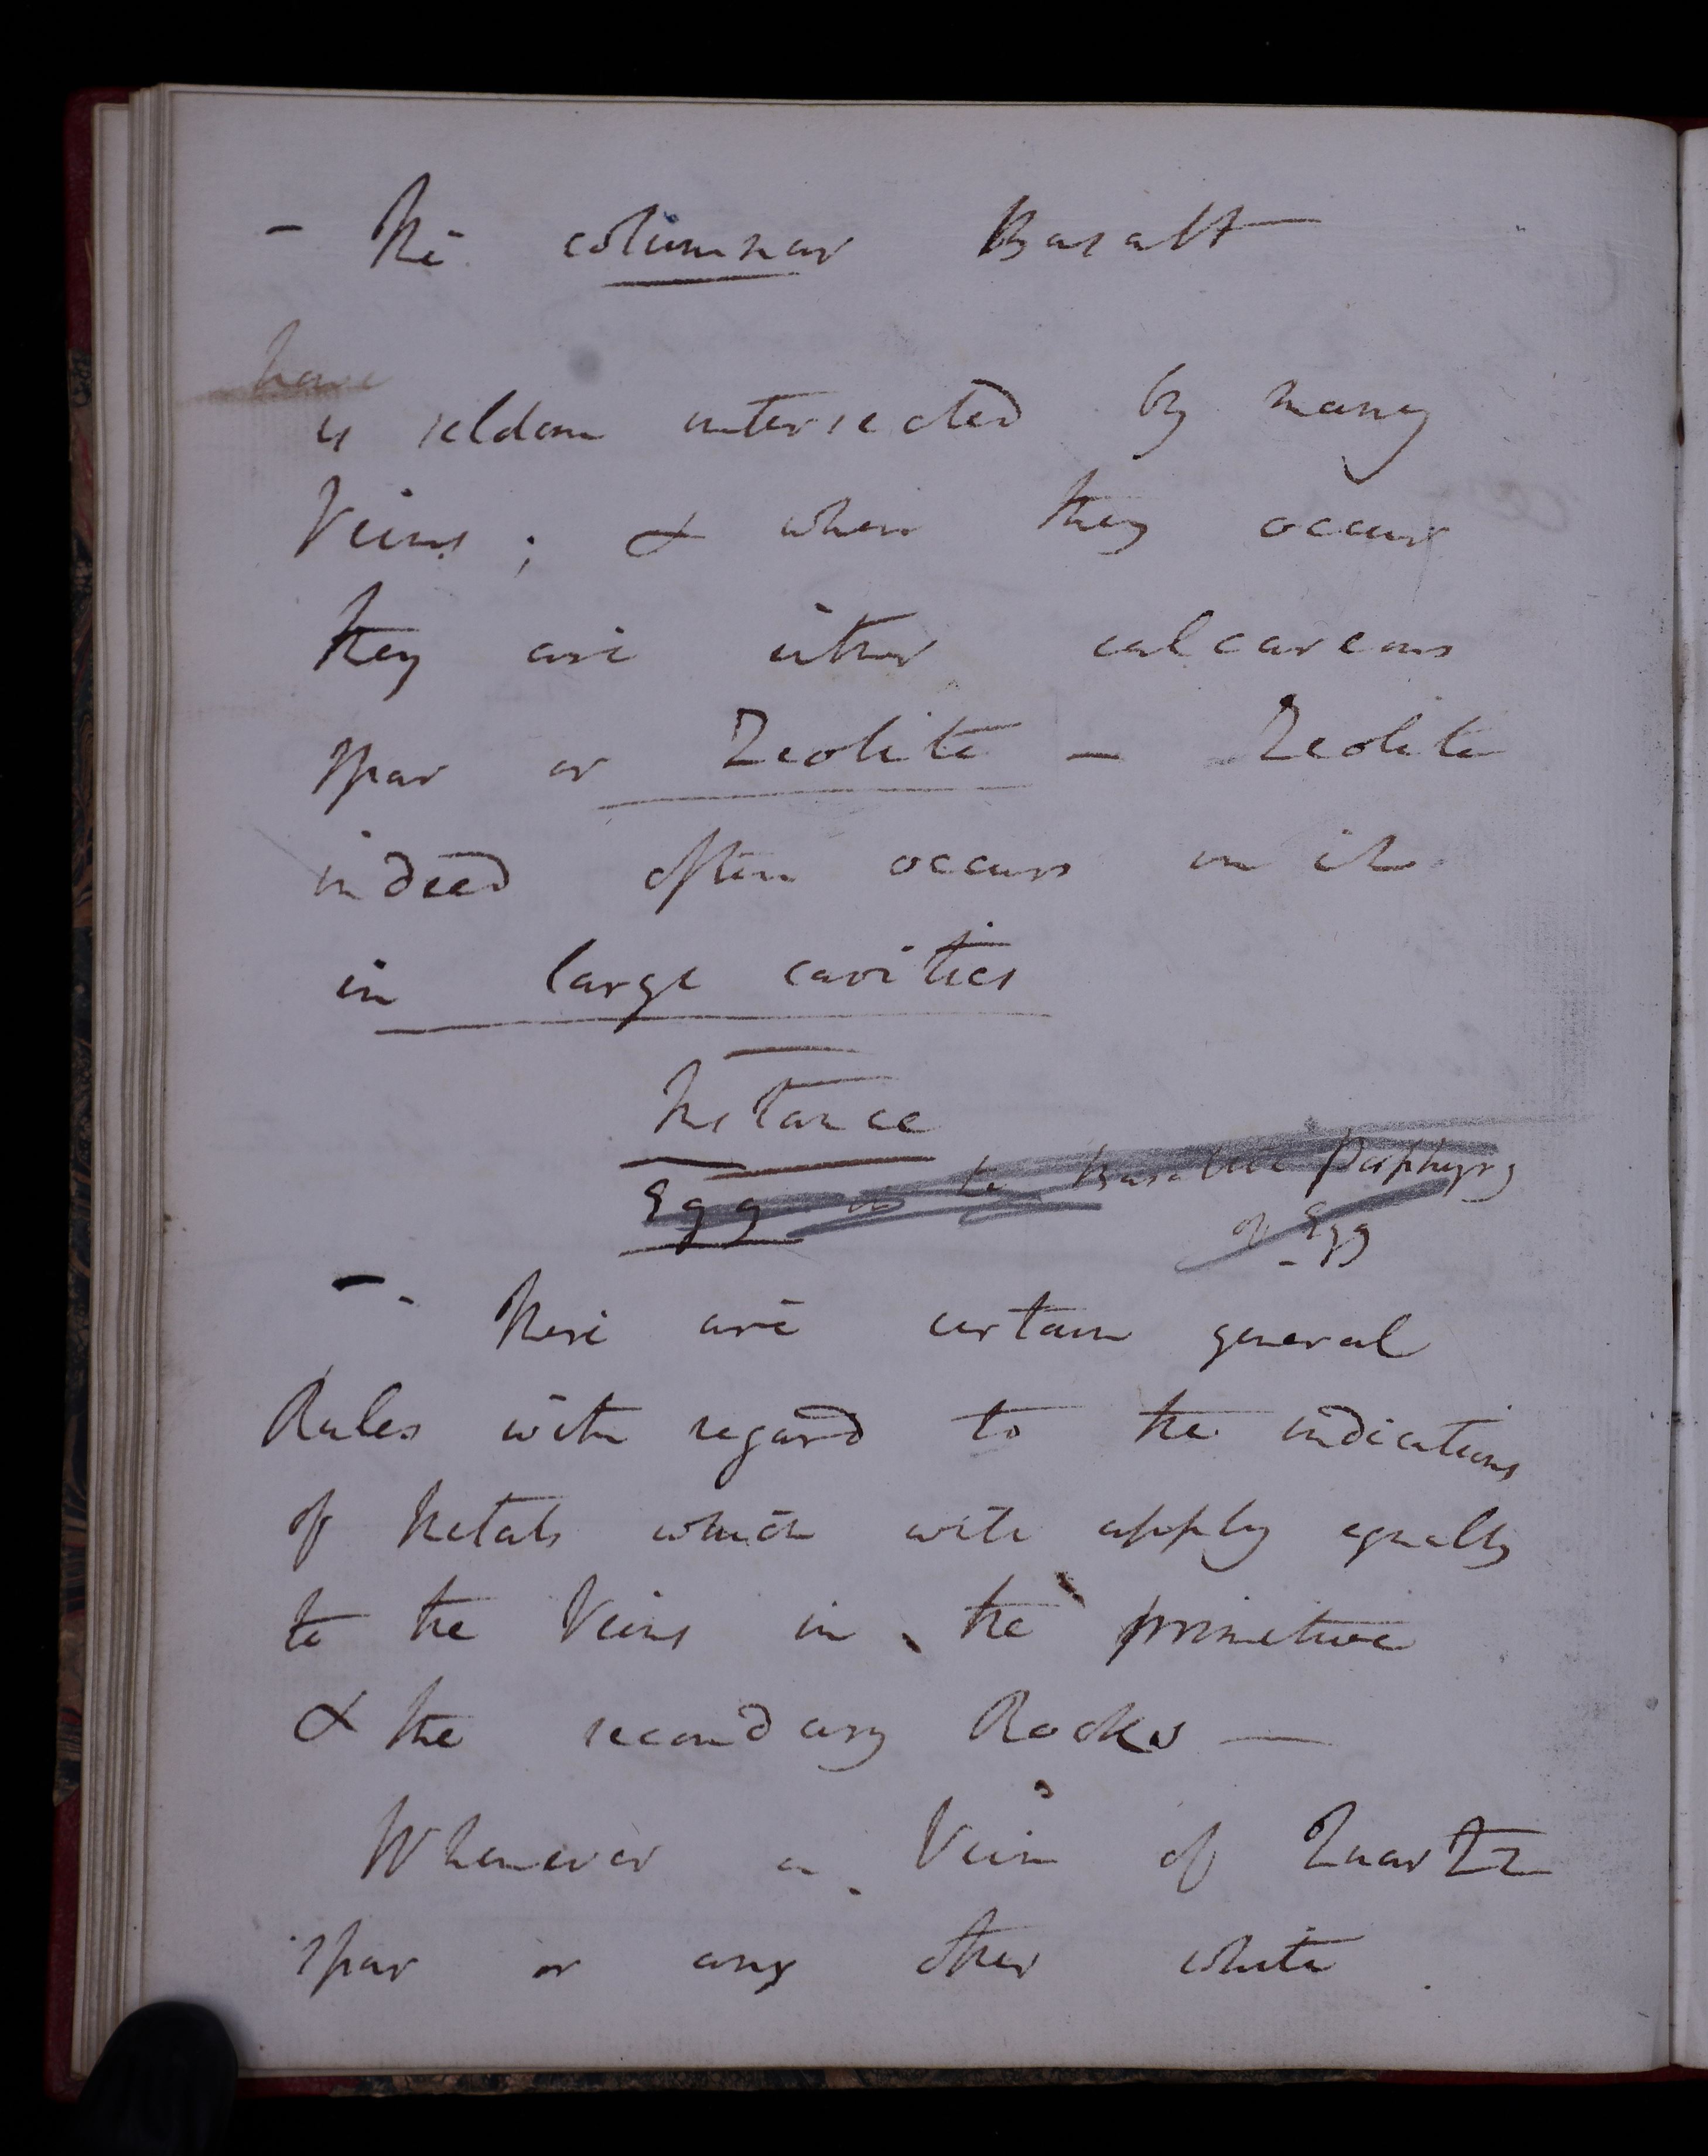 - The columnar Basalt
have
is seldom intersected by many
Veins; & when they occur
they are either calcareous
spar or Zeolite - Zeolite
indeed often occurs in it
in large cavities
Instance
Egg or the Basaltic Porphyry
of Egg
-. There are certain general
Rules with regard to the indications
of Metals which will apply equally
to the Veins in the primitive
& the secondary Rocks -
Whenever a Vein of Quartz
spar or any other white